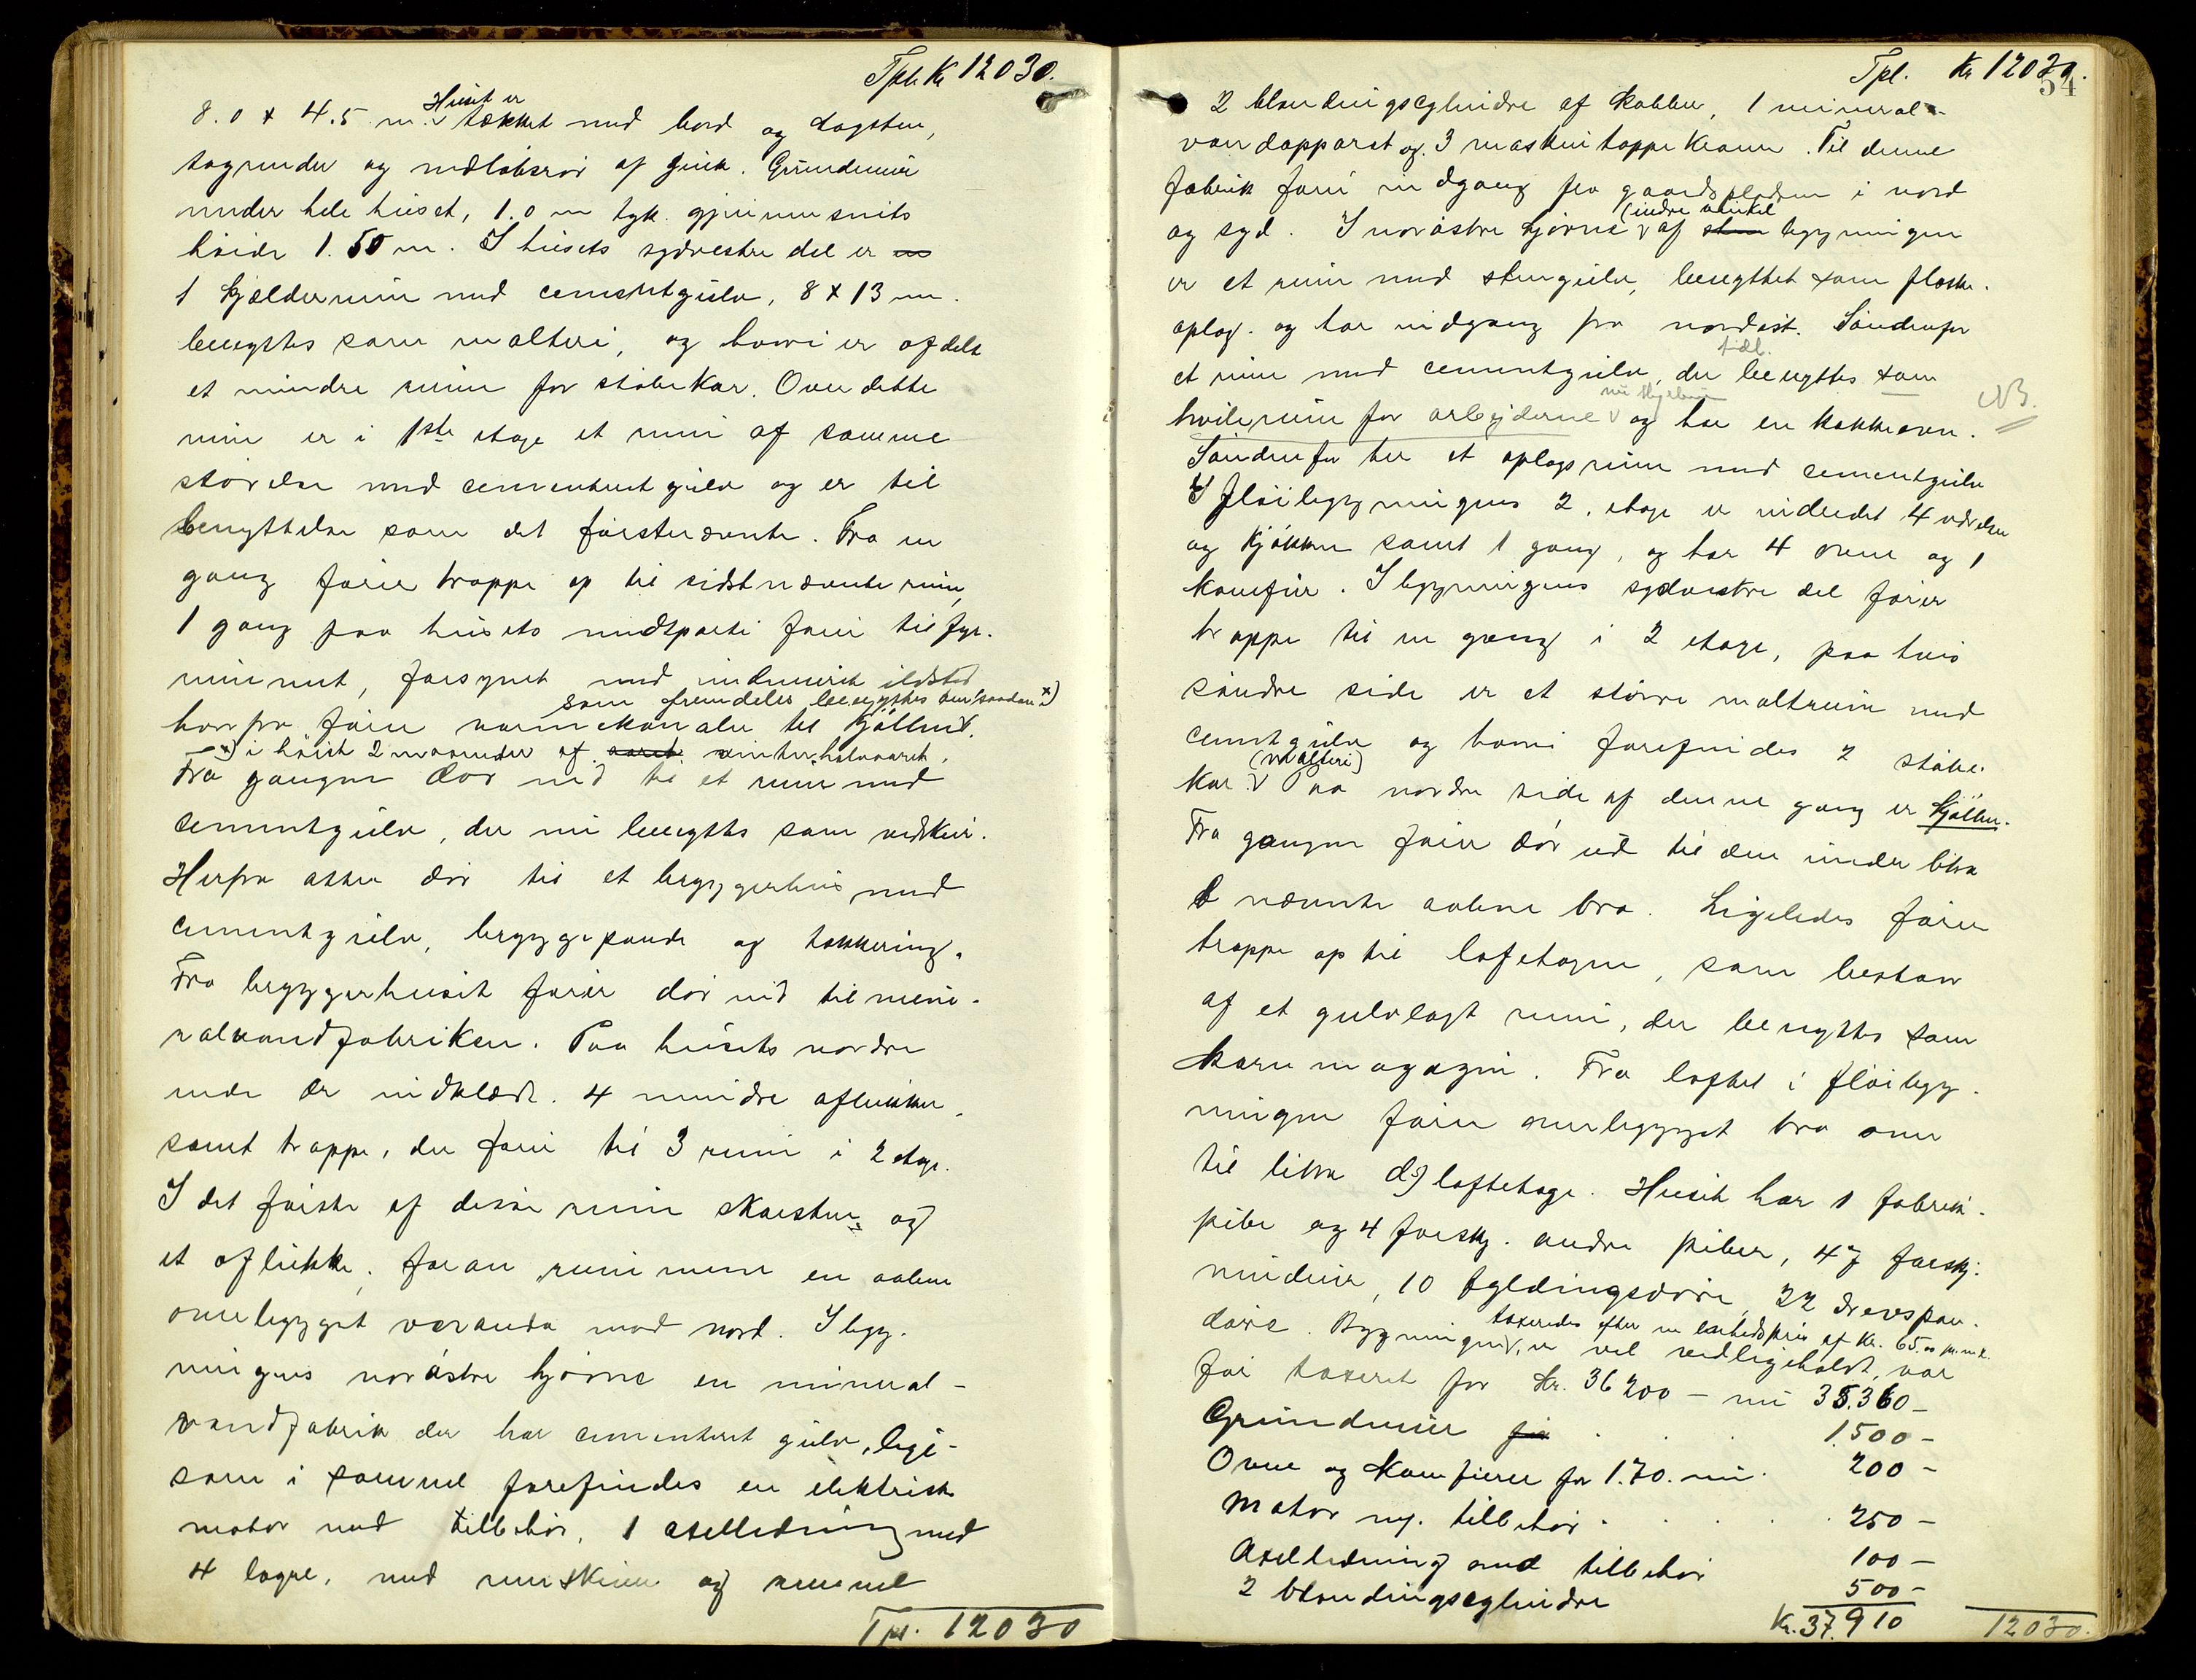 Tpl. Kr 12030.
8.0 x 4.5 m. Huset er tækket med bord og tagsten,
tagrender og nedløbsrør af zink. Grundmur
under hele huset, 1.0 m tyk. gjennemsnits
høide 1.50 m. I husets sydvestre del er
1 kjælderrum med cementgulv, 8 x 13 m.
benyttes som malteri, og hvori er afdelt
et mindre rum for støbekar. Over dette
rum er i 1ste etage et rum af samme
størelse med cementert gulv og er til
benyttelse som det førstnævnte. Fra en
gang fører trappe op til sidstnævnte rum,
1 gang paa husets midtparti fører til fyr-
rummet, forsynet med indmuret ildsted
som fremdeles benyttes som saadan x)
hvorfra fører varmekanaler til kjøllen.
x) i høist 2 maaneder af aaret vinterhalvaaret.
Fra gangen dør ind til et rum med
cementgulv, der nu benyttes som vedskur.
Herfra atter dør til et bryggerhus med
cementgulv, bryggepande og takkering.
Fra bryggerhuset fører dør ind til mine-
ralvandfabriken. Paa husets nordre
ende er indklædt 4 mindre aflukker,
samt trappe, der fører til 3 rum i 2 etage.
I det første af disse rum skorsten og
et aflukke, foran rummene en aaben
overbygget veranda mod nord. I byg-
ningens norøstre hjørne en mineral-
vandfabrik der har cementert gulv, lige-
som i samme forefindes en elektrisk
motor med tilbehør, 1 axelledning med
4 lagre, med remskiver og remme
Tpl. 12030
Tpl. Kr 12030.
54
2 blandingscylindre af kobber, 1 mineral-
vandapparat og 3 maskintappekraner. Til denne
fabrik fører indgang fra gaardspladsen i nord
og syd. I norøstre hjørne (indre vinkel af bygningen
er et rum med stengulv, benyttet som flaske-
oplag og har indgang fra nordøst. Søndenfor
et rum med cementgulv, der tidl. benyttes som
hvilerum for arbejderne og har en kakkelovn. NB.
Søndenfor her et oplagsrum med cementgulv
I fløibygningens 2. etage er indredet 4 værelser
og kjøkken samt 1 gang, og har 4 ovne og 1
komfur. I bygningens sydvestre del fører
trappe til en gang i 2 etage, paa hvis
søndre side er et større maltrum med
cementgulv og hvori forefindes 2 støbe-
kar (malteri) Paa nordre side af denne gang er kjøllen.
Fra gangen fører dør ud til den under litra
b nævnte aabne bro. Ligeledes fører
trappe op til loftetagen, som bestaar
af et gulvlagt rum, der benyttes som
kornmagazin. Fra loftet i fløibyg-
ningen fører overbygget bro over
til litra d) loftetage. Huset har 1 fabrik-
pibe og 4 forskj. andre piber, 47 forskj.
vinduer, 10 fyldingsdøre, 22 drevspan-
døre. Bygningen, taxeredes efter en enhedspris af Kr. 65.00 pr. m2. er vel vedligeholdt, var
før taxeret for Kr. 36200 - nu 35.360 -
Grundmur for 1.500 -
Ovne og komfurer før 170. nu 200 -
Motor m. tilbehør 250 -
Axelledning med tilbehør 100 -
2 blandingscylindre 500 -
Kr. 37.910
12030.